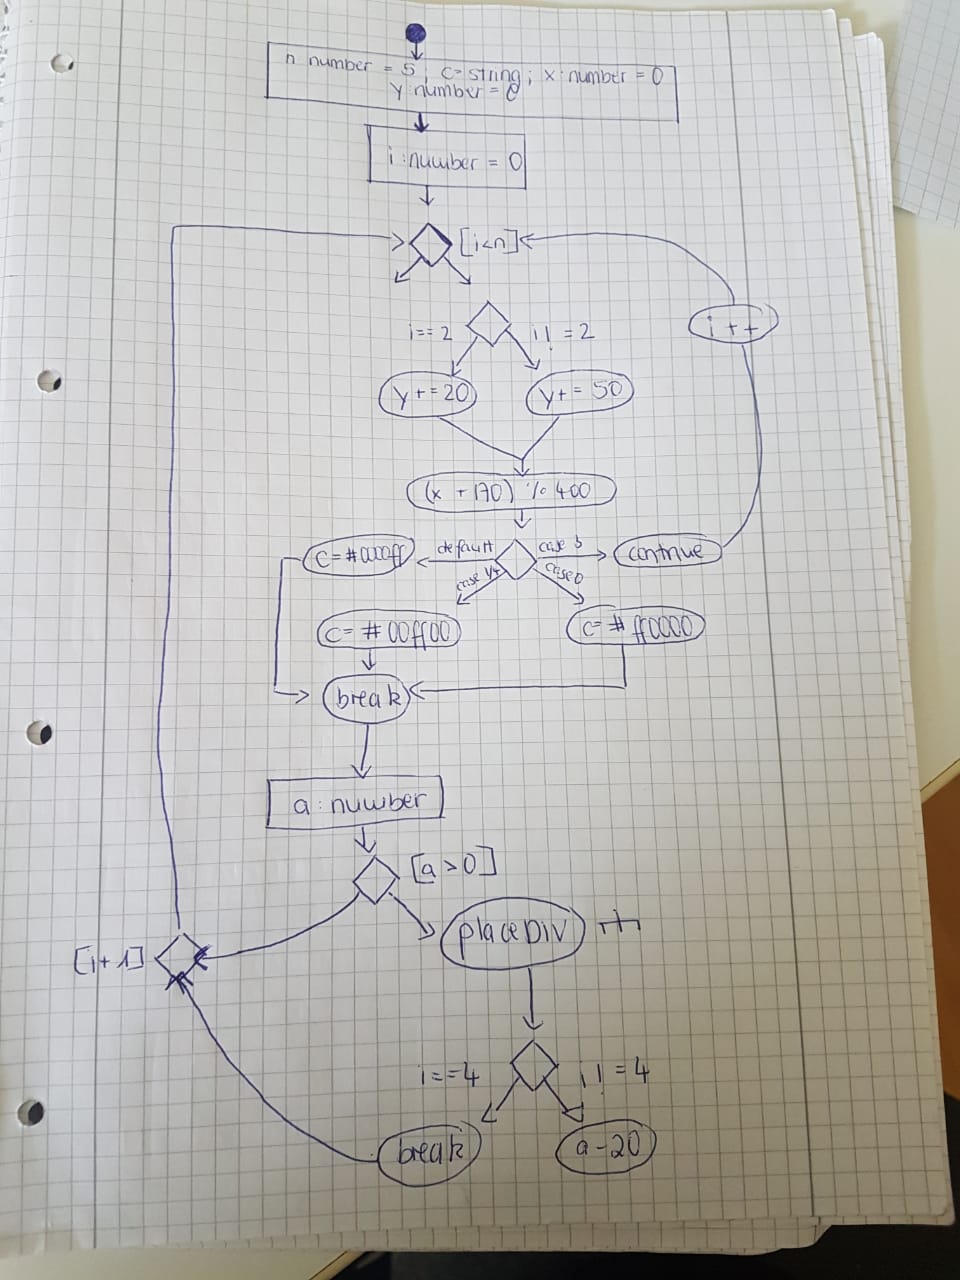 n number = 5, c=string; x: number = 0
y: number = 0
i: number = 0
[i<n]
i++
i==2
i! = 2
y+=20
y+= 50
(x +170) % 400
default
case 3
c=#0000ff
continue
case 4
case 0
c= #00ff00
c= # ff0000
break
a: number
[a>0]
placeDIV
[i+1]
i==4
i! = 4
break
a-20